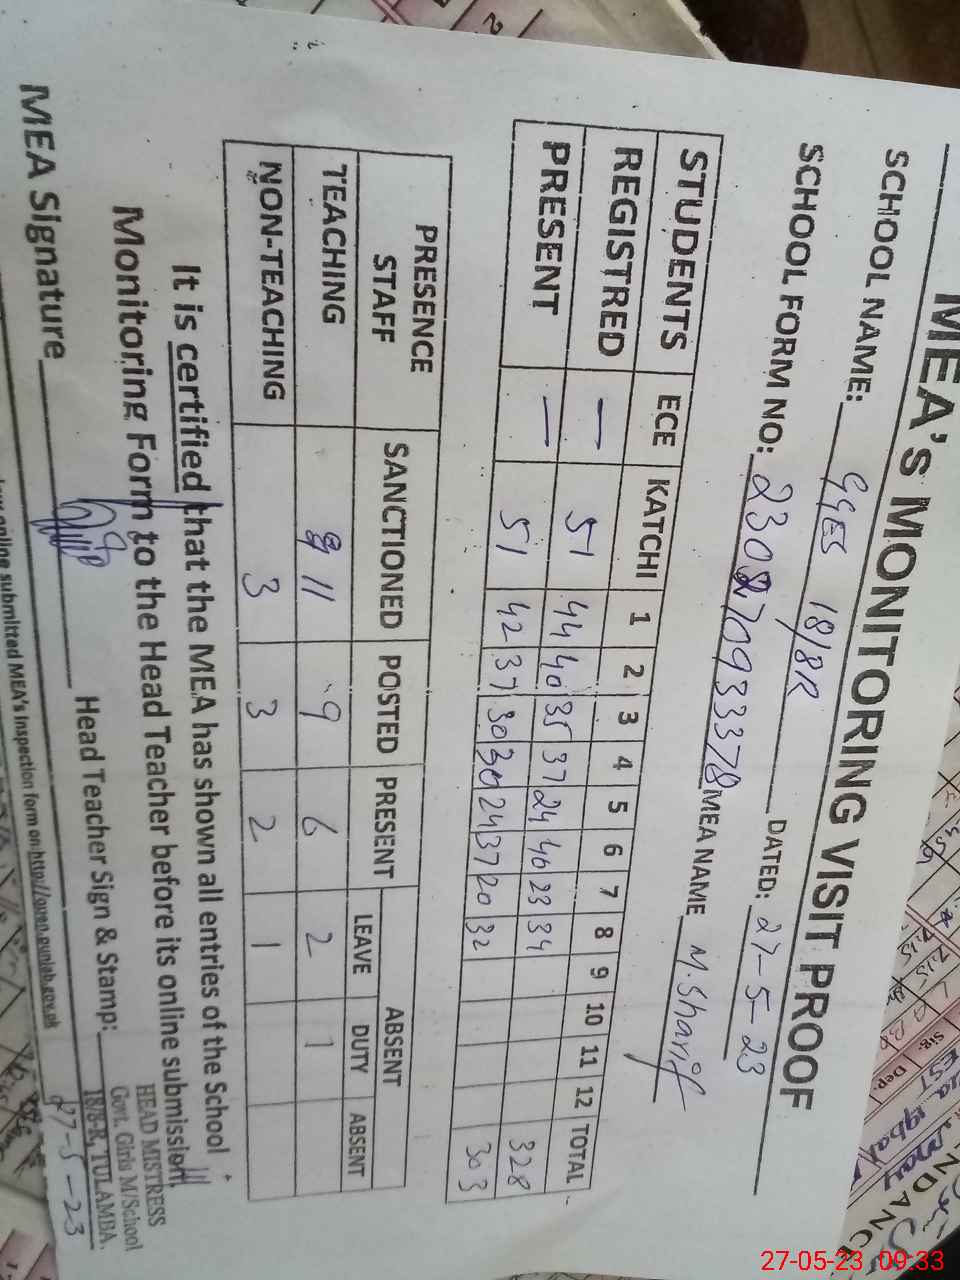 MEA's MONITORING VISIT PROOF
SCHOOL NAME: GGES 18/8R
SCHOOL FORM NO: DATED: 27-5-23
MEA NAME M. Sharif
STUDENTS ECE KATCHI 1 2 3 4 5 6 7 8 9 10 11 12 TOTAL
REGISTRED — 51 44 40 35 37 24 40 23 34 328
PRESENT — 51 42 37 30 30 24 37 20 32 303
PRESENCE STAFF SANCTIONED POSTED PRESENT ABSENT
LEAVE DUTY ABSENT
TEACHING 11 9 6 2 1
NON-TEACHING 3 3 2 1
It is certified that the MEA has shown all entries of the School
Monitoring Form to the Head Teacher before its online submission.
MEA Signature Head Teacher Sign & Stamp:
HEAD MISTRESS
Govt. Girls M/School
18/8-R, TULAMBA.
27-5-23
online submitted MEA's Inspection form on:http://open.punjab.gov.pk
27-05-23 09:33